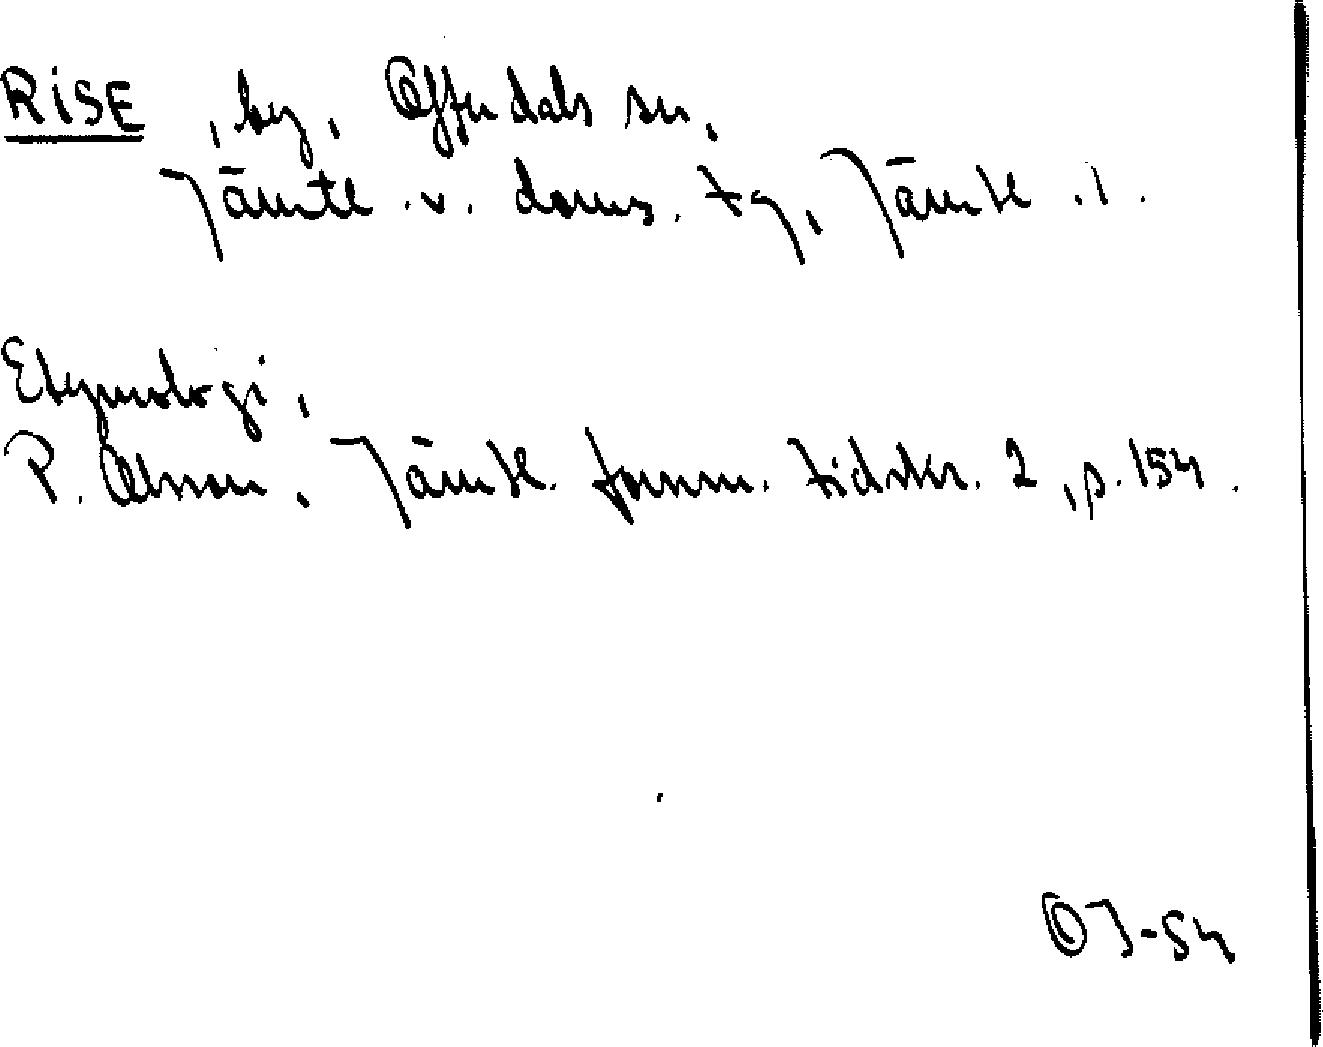 RISE, by, Offerdals sn,
Jämtl. v. doms. tg, Jämtl. l.
Etymologi,
P. Olsson, Jämtl. fornm. tidskr. 2, p. 154.
OJ-54